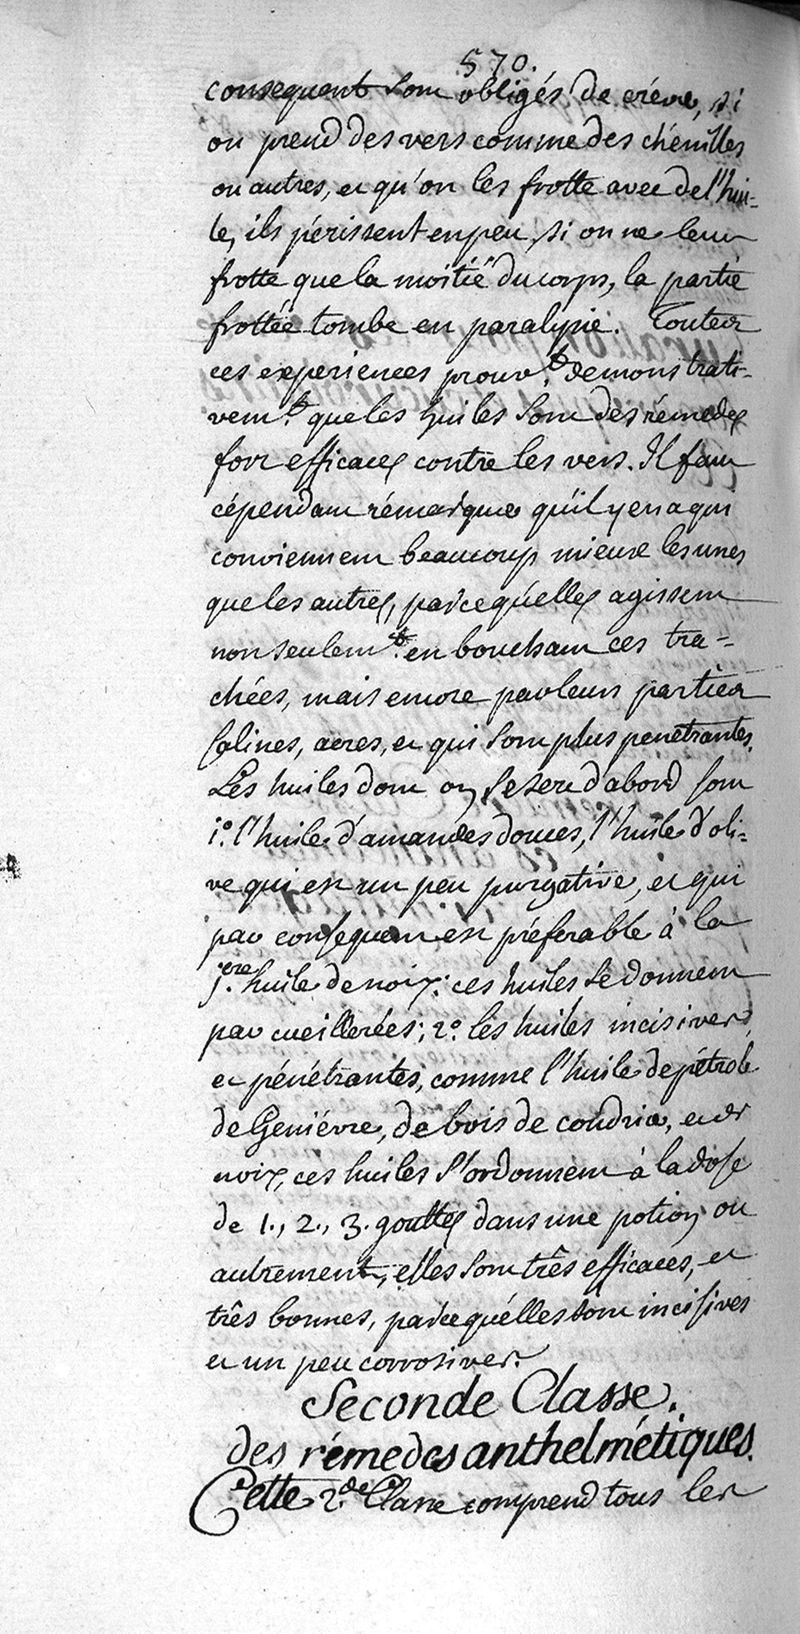 570.
consequent sont obligés de créver, si
on prend des vers comme des chénilles
ou autres, et qu'on les frotte avec de l'hui-
le, ils périssent en peu, si on ne leur
frotte que la moitié du corps, la partie
frottée tombe en paralysie. Toutes
ces experiences prouv.t demonstrati-
vem.t que les huiles sont des rémedes
fort efficaces contre les vers. Il faut
cépendant rémarquer qu'il y en a qui
conviennent beaucoup mieux les unes
que les autres, parce qu'elles agissent
non seulem.t en bouchant ces tra-
chées, mais encore par leurs parties
salines, acres, et qui sont plus penetrantes.
Les huiles dont on se sert d'abord sont
1.° l'huile d'amandes douces, l'huile d'oli-
ve qui est un peu purgative, et qui
par consequent est préferable à la
j.ere huile de noix: ces huiles se donnent
par cueillerées; 2.° les huiles incisives,
et pénétrantes, comme l'huile de pétrole
de Geniévre, de bois de coudrier, et de
noix, ces huiles s'ordonnent à la dose
de 1., 2., 3. gouttes dans une potion ou
autrement, elles sont três efficaces, et
três bonnes, parce qu'elles sont incisives
et un peu corrosives.
Seconde Classe.
des rémedes anthelmétiques.
Cette 2.de Classe comprend tous les